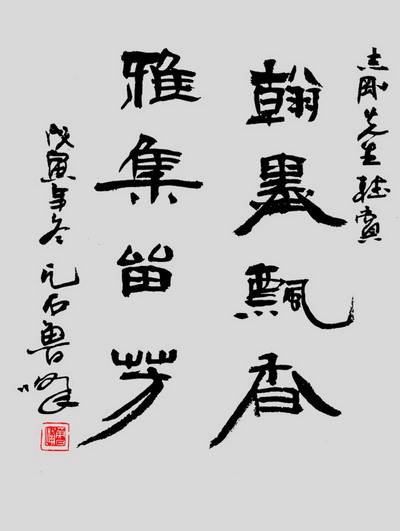 志刚先生雅赏
翰墨飘香
雅集留芳
戊寅年冬 凡石鲁峰